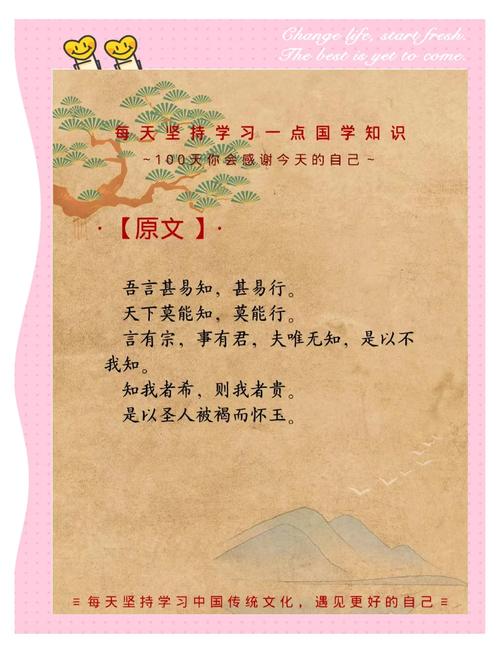 Change life, start fresh.
The best is yet to come.
每天坚持学习一点国学知识
~100天你会感谢今天的自己~
·【原文】·
吾言甚易知，甚易行。
天下莫能知，莫能行。
言有宗，事有君，夫唯无知，是以不
我知。
知我者希，则我者贵。
是以圣人被褐而怀玉。
≡每天坚持学习中国传统文化，遇见更好的自己≡